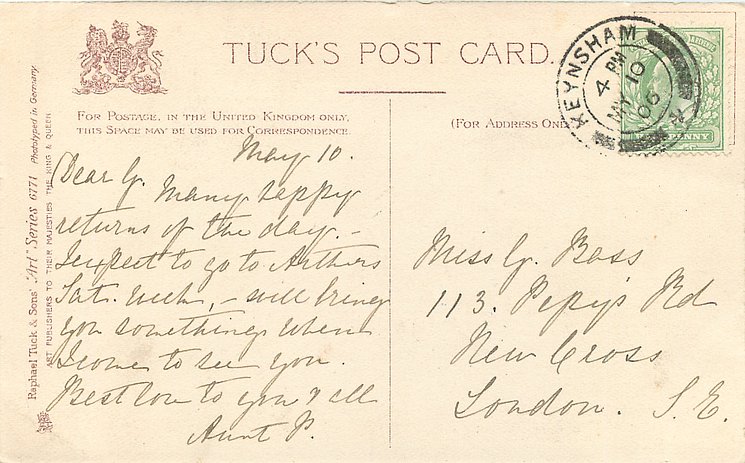 TUCK'S POST CARD.
FOR POSTAGE, IN THE UNITED KINGDOM ONLY,
THIS SPACE MAY BE USED FOR CORRESPONDENCE.
(FOR ADDRESS ONLY
KEYNSHAM
4 PM
MY 10
06
Raphael Tuck & Sons' "Art" Series 6771 Phototyped in Germany
ART PUBLISHERS TO THEIR MAJESTIES THE KING & QUEEN
May 10.
Dear G. Many happy
returns of the day. –
I expect to go to Arthurs
Sat. week, – will bring
you something when
I come to see you.
Best love to you & all
Aunt P.
Miss G. Bass
113. Pepys Rd
New Cross
London. S.E.